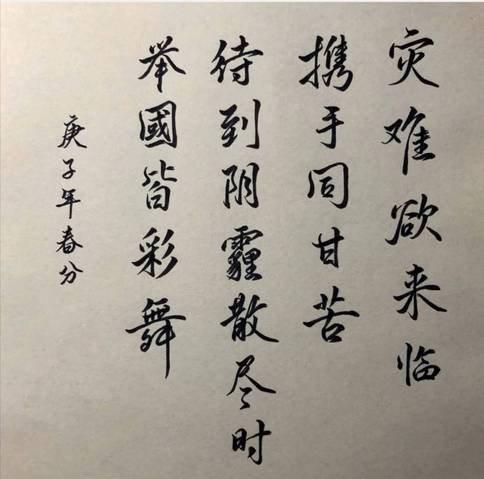 灾难欲来临
携手同甘苦
待到阴霾散尽时
举國皆彩舞
庚子年春分